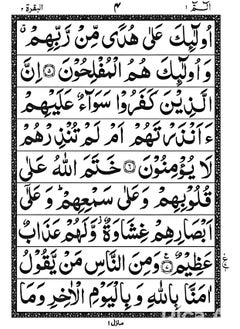 البقرة ٢ ٤ الٓمّٓ ١
اُولٰٓئِكَ عَلٰى هُدًى مِّنْ رَّبِّهِمْ ۙ
وَ اُولٰٓئِكَ هُمُ الْمُفْلِحُوْنَ ۝٥ اِنَّ
الَّذِيْنَ كَفَرُوْا سَوَآءٌ عَلَيْهِمْ
ءَاَنْذَرْتَهُمْ اَمْ لَمْ تُنْذِرْهُمْ
لَا يُؤْمِنُوْنَ ۝٦ خَتَمَ اللّٰهُ عَلٰى
قُلُوْبِهِمْ وَعَلٰى سَمْعِهِمْ ؕ وَعَلٰٓى
اَبْصَارِهِمْ غِشَاوَةٌ ؗ وَّلَهُمْ عَذَابٌ
عَظِيْمٌ ۝٧ وَمِنَ النَّاسِ مَنْ يَّقُوْلُ
اٰمَنَّا بِاللّٰهِ وَ بِالْيَوْمِ الْاٰخِرِ وَمَا
منزل ١